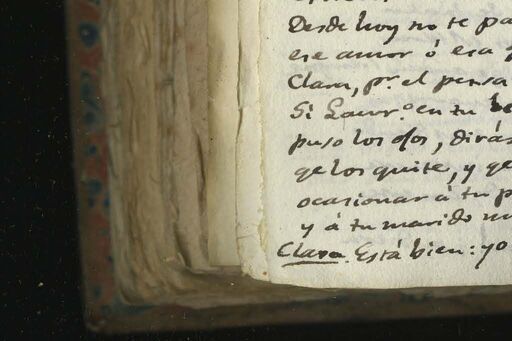 Desde hoy no te pa
ese amor ó esa
Clara, pr. el pensa
Si Laurº. en tu be
puso los dos, dirás
qe los quite, y qe
ocasionar á tu p
y á tu marido mu
Clara. Está bien: yo